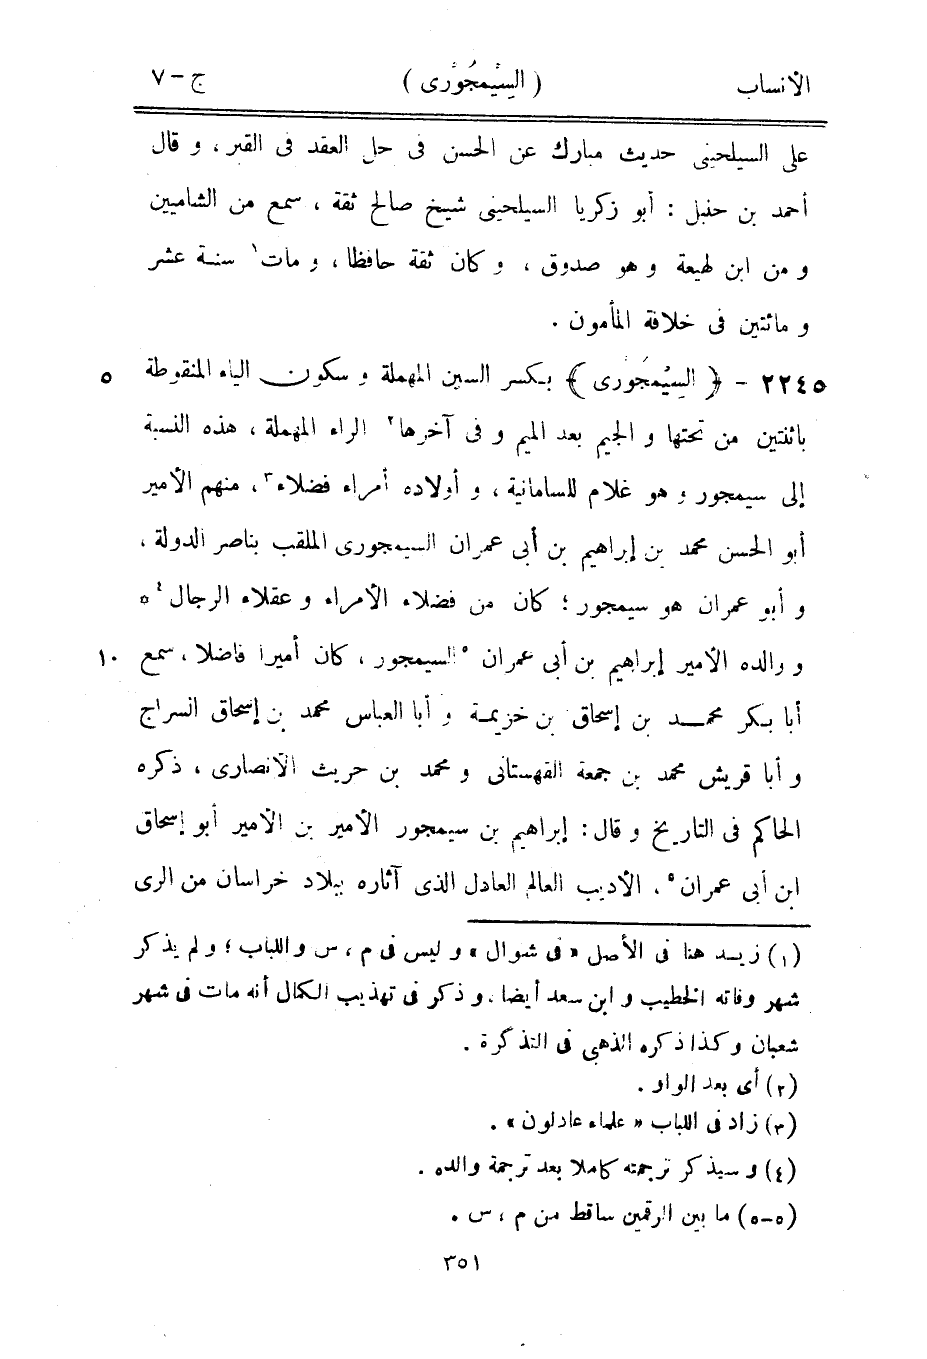 الأنساب (السِّيْمجُوْرى) ج - ٧
على السيلحينى حديث مبارك عن الحسن فى حل العقد فى القبر ، و قال
أحمد بن حنبل : أبو زكريا السيلحينى شيخ صالح ثقة ، سمع من الشاميين
و من ابن لهيعة و هو صدوق ، و كان ثقة حافظا ، و مات١ سنة عشر
و مائتين فى خلافة المأمون .
٢٢٤٥ - ﴿ السِّيْمجُوْرى ﴾ بكسر السين المهملة و سكون الياء المنقوطة ٥
باثنتين من تحتها و الجيم بعد الميم و فى آخرها٢ الراء المهملة ، هذه النسبة
إلى سيمجور و هو غلام للسامانية ، و أولاده أمراء فضلاء٣ ، منهم الأمير
أبو الحسن محمد بن إبراهيم بن أبى عمران السيمجورى الملقب بناصر الدولة ،
و أبو عمران هو سيمجور ؛ كان من فضلاء الأمراء و عقلاء الرجال٤ *
و والده الأمير إبراهيم بن أبى عمران ٥السيمجور ، كان أميرا فاضلا ، سمع ١٠
أبا بكر محمد بن إسحاق بن خزيمة و أبا العباس محمد بن إسحاق السراج
و أبا قريش محمد بن جمعة القهستانى و محمد بن حريث الأنصارى ، ذكره
الحاكم فى التاريخ و قال : إبراهيم بن سيمجور الأمير بن الأمير أبو إسحاق
ابن أبى عمران٥ ، الأديب العالم العادل الذى آثاره ببلاد خراسان من الرى
(١) زيد هنا فى الأصل « فى شوال » و ليس فى م ، س و اللباب ؛ و لم يذكر
شهر وفاته الخطيب و ابن سعد أيضا ، و ذكر فى تهذيب الكمال أنه مات فى شهر
شعبان و كذا ذكره الذهبى فى التذكرة .
(٢) أى بعد الواو .
(٣) زاد فى اللباب « علماء عادلون » .
(٤) و سيذكر ترجمته كاملا بعد ترجمة والده .
(٥-٥) ما بين الرقمين ساقط من م ، س .
٣٥١